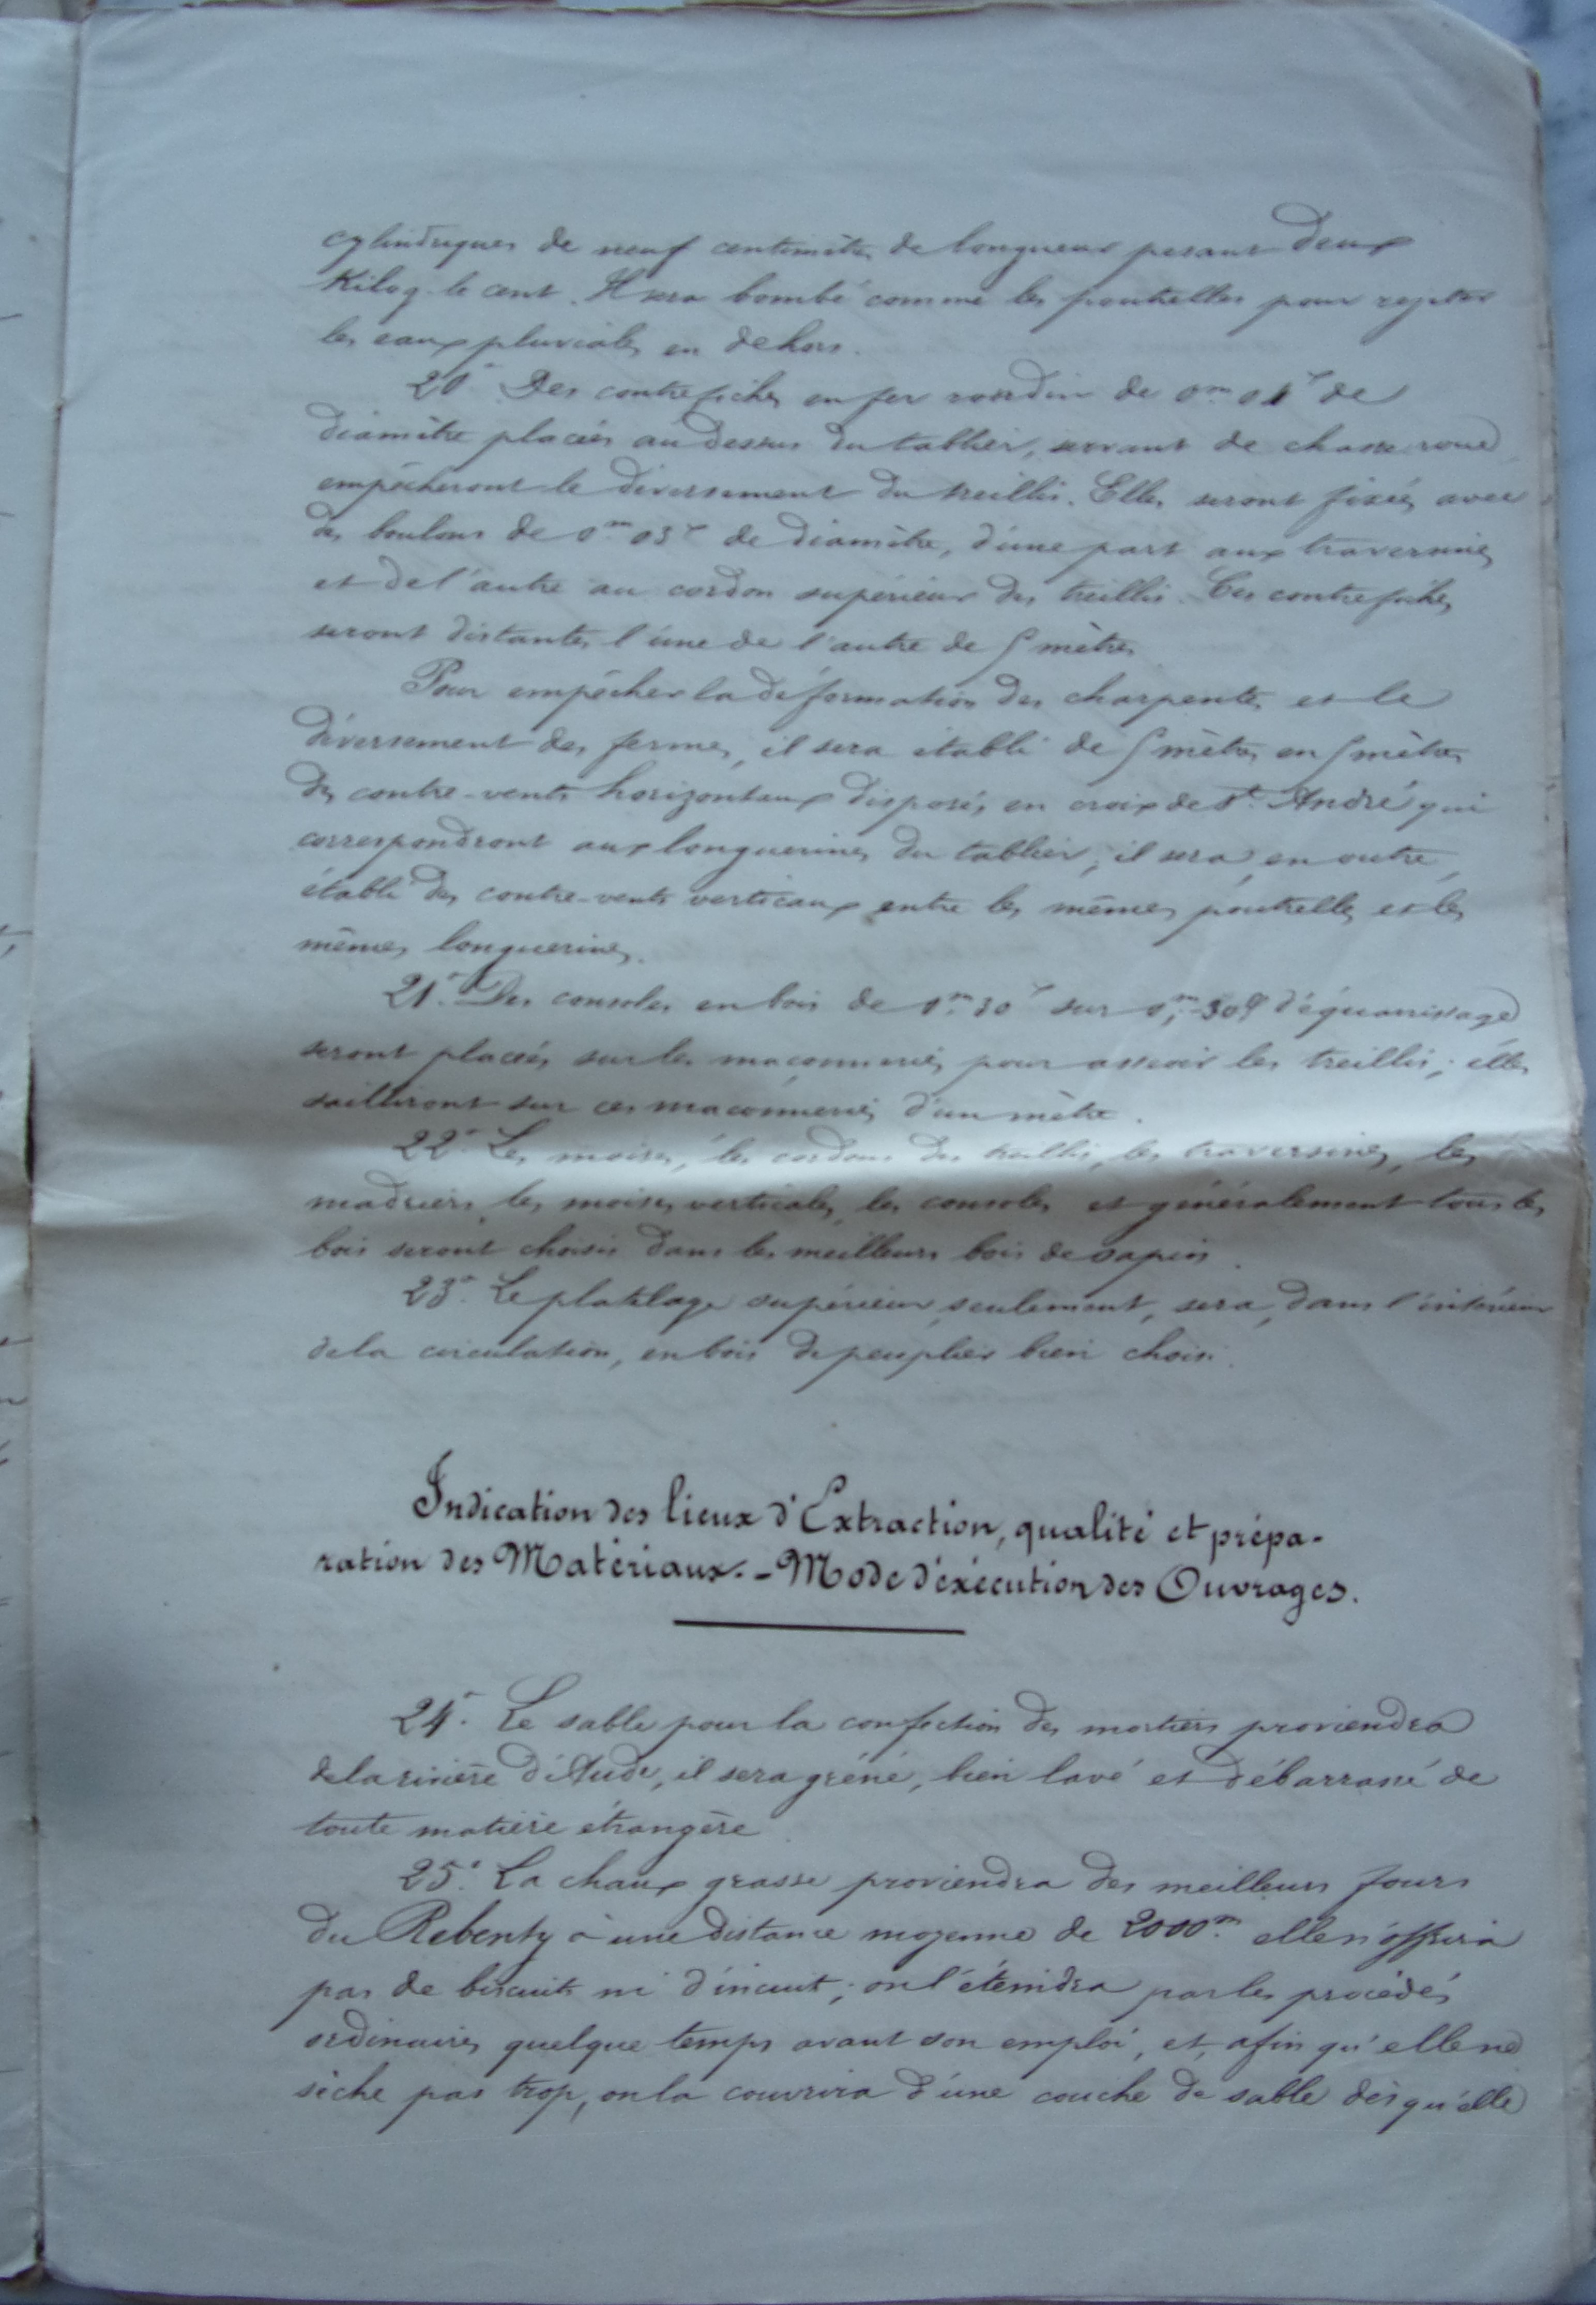 cylindriques de neuf centimètres de longueur pesant deux
Kilog. le cent. Il sera bombé comme les poutrelles pour rejeter
les eaux pluviales en dehors.
20° Des contrefiches en fer rondin de de
diamètre placées au dessus du tablier, servant de chasse roue
empêcheront le diversement du treillis. Elles seront fixées avec
des boulons de 0m 03c de diamètre, d'une part aux traversines
et de l'autre au cordon supérieur des treillis. Ces contrefiches
seront distantes l'une de l'autre de 5 mètres
Pour empêcher la déformation des charpentes et le
diversement des fermes, il sera établi de 5 mètres en 5 mètres
des contre-vents horizontaux disposés en croix de St. André qui
correspondront aux longuerines du tablier; il sera, en outre,
établi des contre-vents verticaux entre les mêmes poutrelles et les
mêmes longuerines.
21° Des consoles en bois de 0m.30c sur 0m.30c d'équarrissage
seront placées sur les maçonneries pour asseoir les treillis; elles
sailliront sur ces maçonneries d'un mètre.
22° Les moises, les cordons des treillis, les traversines, les
madriers, les moises verticales, les consoles et généralement tous les
bois seront choisis dans les meilleurs bois de sapin.
23° Le platelage supérieur, seulement, sera, dans l'intérieur
de la circulation, en bois de peuplier bien choisi.
Indication des lieux d'Extraction, qualité et prépa-
ration des Matériaux. - Mode d'éxécution des Ouvrages.
24° Le sable pour la confection des mortiers proviendra
de la rivière d'Aude, il sera gréné, bien lavé et débarrassé de
toute matière étrangère
25° La chaux grasse proviendra des meilleurs fours
du Rebenty à une distance moyenne de 2000m. elle n'offrira
pas de biscuits ni d'incuit; on l'éteindra par les procédés
ordinaires quelque temps avant son emploi, et, afin qu'elle ne
sèche pas trop, on la couvrira d'une couche de sable dès qu'elle